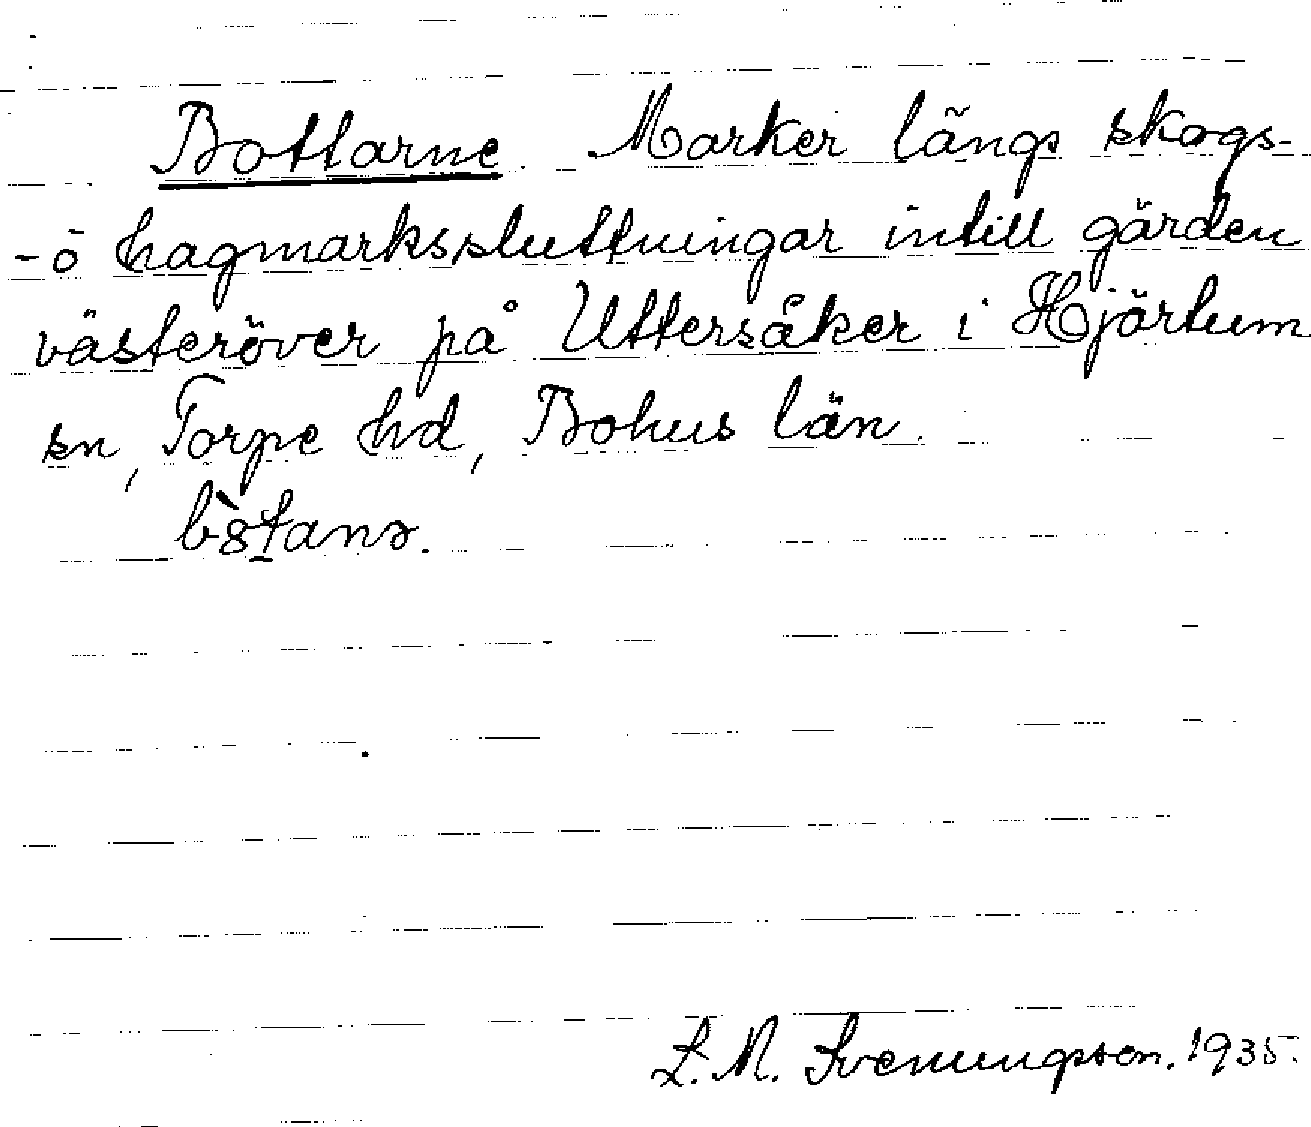 Bottarne. Marker längs skogs-
-ō hagmarkssluttningar intill gärden
västeröver på Uttersåker i Hjärtum
sn, Torpe hd, Bohus län.
L. M. Svenungsson. 1935.